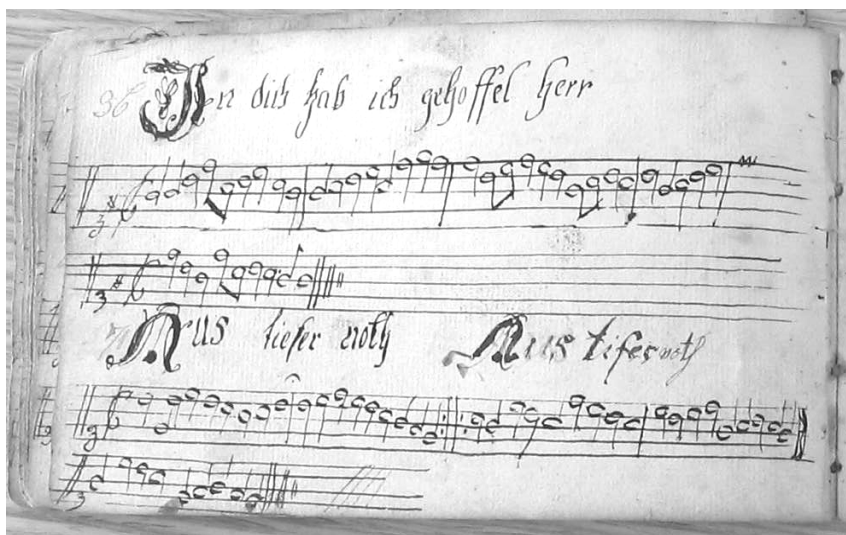 36 In dich hab ich gehoffel Herr
3
3
Aus tiefer noth Aus tifer noth
3
3